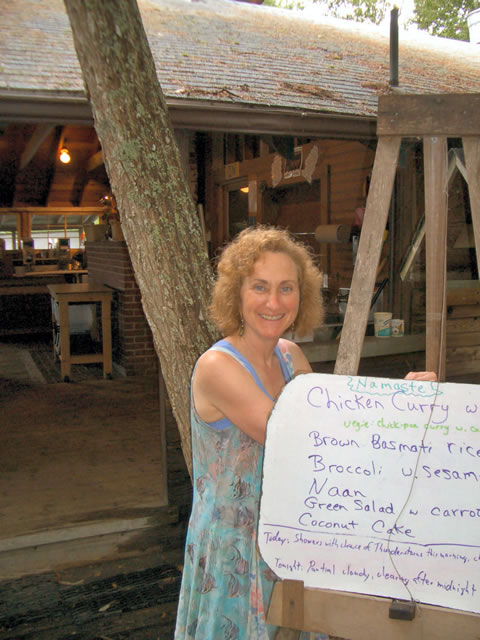 Namaste
Chicken Curry w
vegie: chick-pea curry w. ca
Brown Basmati rice
Broccoli w. Sesam
Naan
Green Salad w carrot
Coconut Cake
Today: Showers with chance of Thunderstorms this morning, c
Tonight: Partial cloudy, clearing after midnight